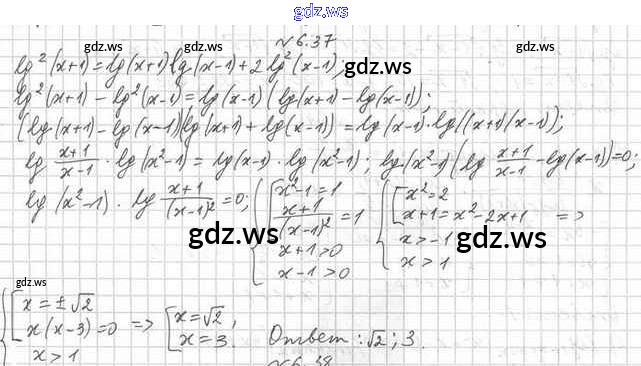 gdz.ws
№6.37
gdz.ws gdz.ws gdz.ws
lg²(x+1)=lg(x+1)lg(x-1)+2lg²(x-1); gdz.ws
lg²(x+1)-lg²(x-1)=lg(x-1)(lg(x+1)-lg(x-1));
(lg(x+1)-lg(x-1))(lg(x+1)+lg(x-1))=lg(x-1)·lg((x+1)(x-1));
lg (x+1)/(x-1) · lg(x²-1)=lg(x-1)·lg(x²-1); lg(x²-1)(lg (x+1)/(x-1) -lg(x-1))=0;
lg(x²-1)·lg (x+1)/(x-1)² =0; {[x²-1=1 {[x²=2
(x+1)/(x-1)² =1 x+1=x²-2x+1 =>
gdz.ws gdz.ws
x+1>0 x>-1
x-1>0 x>1
gdz.ws
{[x=±√2
x(x-3)=0 => [x=√2,
x=3. Ответ: √2; 3.
x>1
№6.38